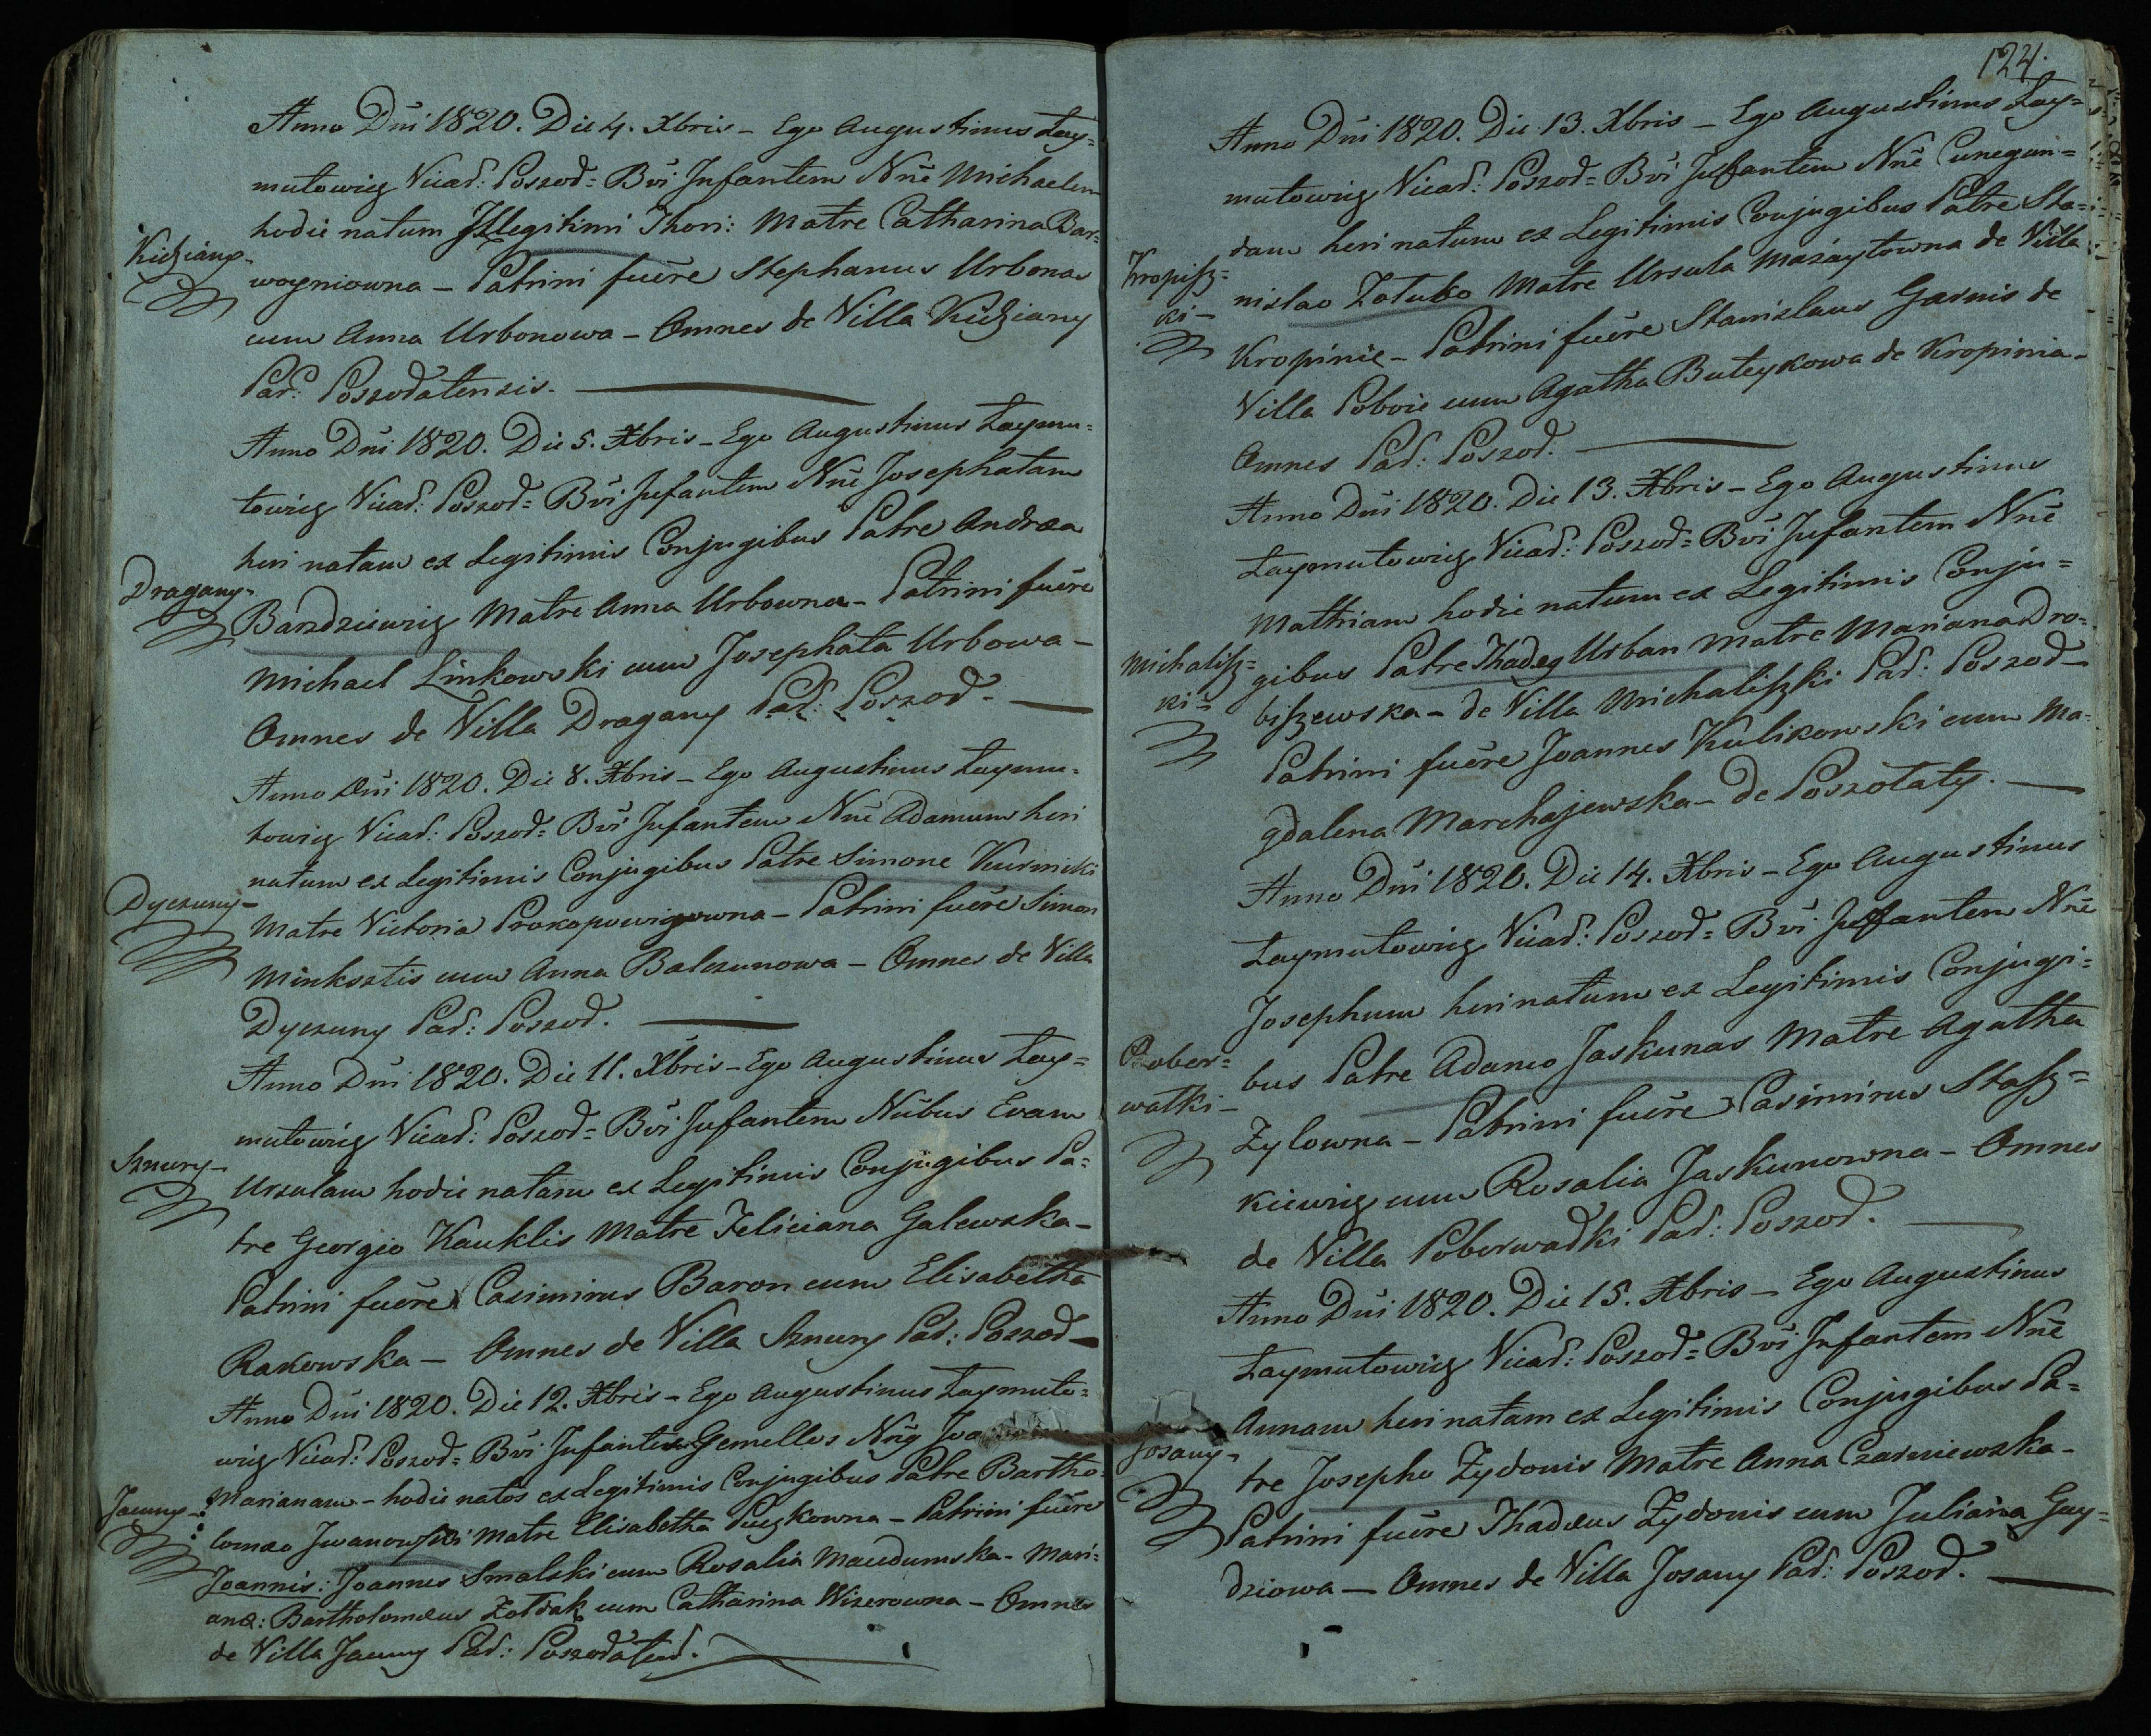 Anno Dni 1820. Die 4. Xbris – Ego Augustinus Lay=
mutowicz Vicar: Poszod= Bvi Infantem Nne Michaelem
hodie natum Illegitimi Thori: Matre Catharina Bar=
Kidziany–
woyniowna – Patrini fuere Stephanus Urbonas
cum Anna Urbonowa – Omnes de Villa Kidziany
Par: Poszodatensis.
Anno Dni 1820. Die 5. Xbris – Ego Augustinus Laymu=
towicz Vicar: Poszod= Bvi Infantem Nne Josephatam
heri natam ex Legitimis Conjugibus Patre Andrea
Dragany–
Barzdziewicz Matre Anna Urbowna – Patrini fuere
Michael Linkowski cum Josephata Urbowa –
Omnes de Villa Dragany Par: Poszod –
Anno Dni 1820. Die 8. Xbris – Ego Augustinus Laymu=
towicz Vicar: Poszod= Bvi Infantem Nne Adamum heri
natum ex Legitimis Conjugibus Patre Simone Kurmicki
Dyczuny–
Matre Victoria Prokopowiczowna – Patrini fuere Simon
Minksztis cum Anna Balczunowa – Omnes de Villa
Dyczuny Par: Poszod.
Anno Dni 1820. Die 11. Xbris – Ego Augustinus Lay=
mutowicz Vicar: Poszod= Bvi Infantem Nibus Evam
Sznury–
Ursulam hodie natam ex Legitimis Conjugibus Pa=
tre Georgio Kauklis Matre Feliciana Galewska –
Patrini fuere Casimirus Baron cum Elisabetha
Rakowska – Omnes de Villa Sznury Par: Poszod –
Anno Dni 1820. Die 12. Xbris – Ego Augustinus Laymuto=
wicz Vicar: Poszod= Bvi Infantes Gemellos
Marianam – hodie natos ex Legitimis Conjugibus Patre Bartho=
Jauny–
lomeo Jwanowski Matre Elisabetha Puczkowna – Patrini fuere
Joannis: Joannes Smalski cum Rosalia Maudumska – Mari=
anæ: Bartholomæus Zoldak cum Catharina Wizerowna – Omnes
de Villa Jauny Par: Poszodaten.
124.
Anno Dni 1820. Die 13. Xbris – Ego Augustinus Lay=
mutowicz Vicar: Poszod= Bvi Infantem Nne Cunegun=
dam heri natum ex Legitimis Conjugibus Patre Sta=
Kropisz=
ki–
nislao Zotubo Matre Ursula Mazaytowna de Villa
Kropinie – Patrini fuere Stanislaus Garnis de
Villa Poboie cum Agatha Buteykowa de Kropinia –
Omnes Par: Poszod.
Anno Dni 1820. Die 13. Xbris – Ego Augustinus
Laymutowicz Vicar: Poszod= Bvi Infantem Nne
Mathiam hodie natum ex Legitimis Conju=
Michalisz=
ki–
gibus Patre Thadeg Urban Matre Mariana Dro=
biszewska – de Villa Michaliszki Par: Poszod –
Patrini fuere Joannes Kulikowski cum Ma=
gdalena Marchajewska – de Poszotaty.
Anno Dni 1820. Die 14. Xbris – Ego Augustinus
Laymutowicz Vicar: Poszod= Bvi Infantem Nne
Josephum heri natum ex Legitimis Conjugi=
Pober=
watki–
bus Patre Adamo Jaskunas Matre Agatha
Zylowna – Patrini fuere Casimirus Stasz=
kiewicz cum Rosalia Jaskunowna – Omnes
de Villa Poberwadki Par: Poszod.
Anno Dni 1820. Die 15. Xbris – Ego Augustinus
Laymutowicz Vicar: Poszod= Bvi Infantem Nne
Annam heri natam ex Legitimis Conjugibus Pa=
Josany–
tre Josepho Zydonis Matre Anna Czarniewska –
Patrini fuere Thadæus Zydonis cum Juliana Gay=
dziowa – Omnes de Villa Josany Par: Poszod.